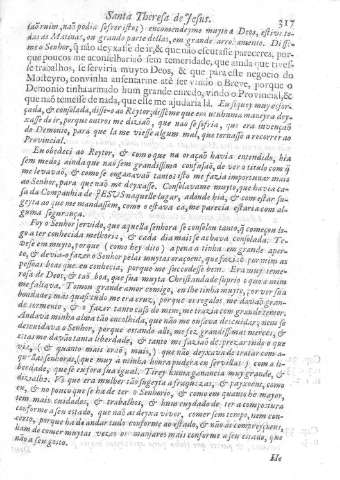 Santa Theresa de Jesus. 317
tão ruim, não podia sofrer isto) encomendeyme muyto a Deos, estive to-
das as Matinas, ou grande parte dellas, em grande arrobamento. Disse-
me o Senhor, q̃ não deyxasse de ir, & que não escutasse pareceres, por-
que poucos me aconselharião sem temeridade, que ainda que tives-
se trabalhos, se serviria muyto Deos, & que para este negocio do
Mosteyro, convinha ausentarme até ser vindo o Breve, porque o
Demonio tinha armado hum grande enredo, vindo o Provincial, &
que não temesse de nada, que elle me ajudaria lá. Eu fiquey muy esfor-
çada, & consolada, disse-o ao Reytor; dissème que em nenhuma maneyra dey-
xasse de ir, porque outros me dizião, que não se sofria, que era invenção
do Demonio, para que lá me viesse algum mal, que tornasse a recorrer ao
Provincial.
Eu obedeci ao Reytor, & com o que na oração havia entendido, hia
sem medo, ainda que não sem grandissima confusão, de ver o titulo com q̃
me levavão, & como se enganavão tanto; isto me fazia importunar mais
ao Senhor, para que não me deyxasse. Consolavame muyto, que havia ca-
sa da Companhia de JESU naquelle lugar, adonde hia, & com estar su-
geyta ao que me mandassem, como o estava cá, me parecia estaria com al-
guma segurança.
Foy o Senhor servido, que aquella senhora se consolou tanto, q̃ conheci-
da melhoria, & cada dia mais se achava consolada. Te-
vese em muyto, porque (como hey dito) a pena a tinha em grande aper-
to, & devia-o fazer o Senhor pelas muytas oraçoens, que fazião por mim as
pessoas boas que eu conhecia, porque me succedesse bem. Era muy teme-
rosa de Deos, & tão boa, que sua muyta Christandade suprio o que a mim
me faltava. Tomou grande amor comigo, eu lhe tinha muyto, por ver sua
bondade; mas quasi tudo me era cruz, porque os regalos me davão gran-
de tormento, & o fazer tanto caso de mim, me trazia com grande temor.
Andava minha alma tão encolhida, que não me ousava descuidar, nem se
descuidava o Senhor, porque estando alli, me fez grandissimas merces, &
estas me davão tanta liberdade, & tanto me fazião desprezar tudo o que
via, (& quanto mais erão, mais,) que não deyxava de tratar com a-
quellas senhoras, (que muy a minha honra pudera eu servillas) com a li-
berdade, que se eu fora sua igual. Tirey huma ganancia muy grande, &
dizialho. Vi que era mulher tão sugeyta a fraquezas, & payxoens, como
eu, & no pouco que se ha de ter o Senhorio, & como em quanto he mayor,
tem mais cuidados, & trabalhos, & hum cuydado de ter a compostura
conforme a seu estado, que não as deyxa viver, comer sem tempo, nem con-
certo, porque ha de andar tudo conforme ao estado, & não às compreyçoens,
hão de comer muytas vezes os manjares mais conforme a seu estado, que
não a seu gosto.
He